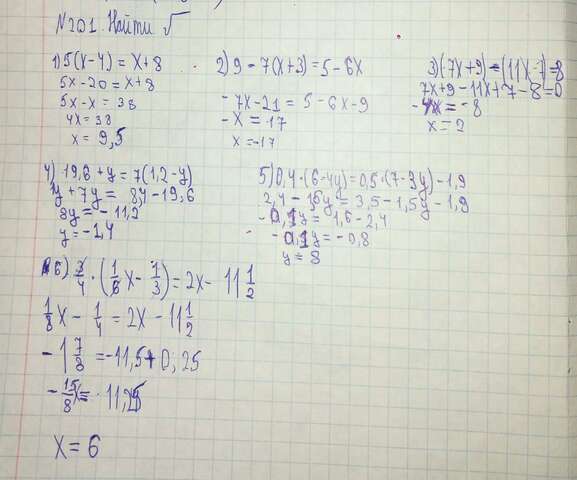 №201. Найти √
1) 5(x-4) = x+8
5x-20 = x+8
5x-x = 38
4x = 38
x = 9,5
2) 9-7(x+3) = 5-6x
-7x-21 = 5-6x-9
-x = 17
x = -17
3) (7x+9)-(11x-7)=8
7x+9-11x+7-8=0
-4x = -8
x = 2
4) 19,6+y = 7(1,2-y)
y+7y = 8,4-19,6
8y = -11,2
y = -1,4
5) 0,4·(6-4y) = 0,5·(7-3y)-1,9
2,4-1,6y = 3,5-1,5y-1,9
-0,1y = 1,6-2,4
-0,1y = -0,8
y = 8
6) 3/4·(1/6x-1/3) = 2x-11 1/2
1/8x-1/4 = 2x-11 1/2
-1 7/8 = -11,5+0,25
-15/8x = -11,25
x = 6